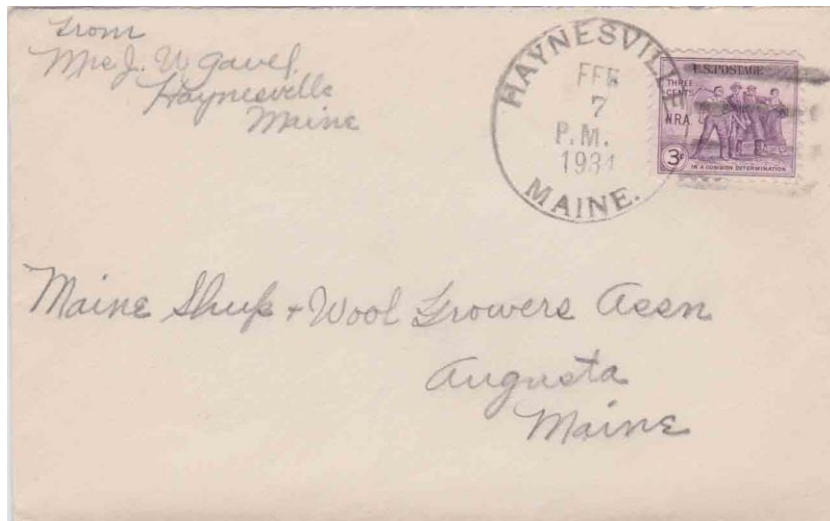 From
Mrs J. W Gavel,
Haynesville
Maine
HAYNESVILLE
FEB
7
P.M.
1934
MAINE.
U.S.POSTAGE
THREE
CENTS
NRA
3¢
IN A COMMON DETERMINATION
Maine Sheep + Wool Growers Assn
Augusta
Maine